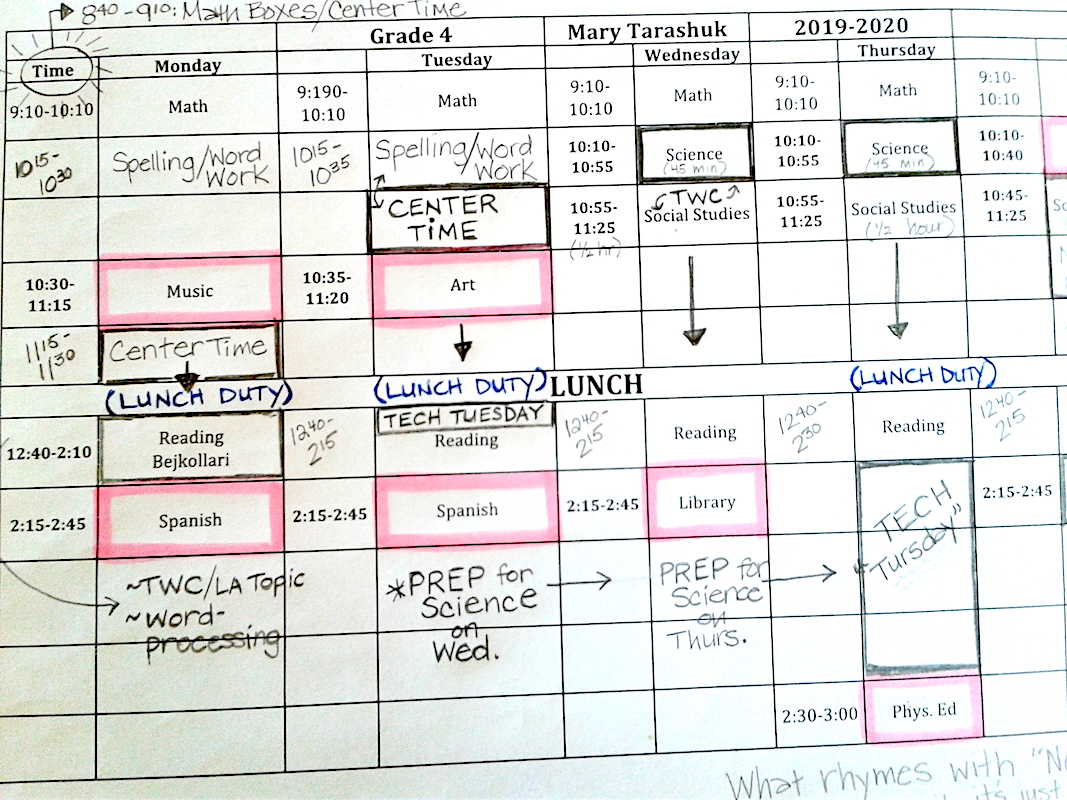 8:40-9:10: Math Boxes/Center Time
Grade 4 Mary Tarashuk 2019-2020
Time Monday Tuesday Wednesday Thursday
9:10-10:10 Math 9:190-10:10 Math 9:10-10:10 Math 9:10-10:10 Math 9:10-10:10
10:15-10:30 Spelling/Word Work 10:15-10:35 Spelling/Word Work 10:10-10:55 Science (45 min) 10:10-10:55 Science (45 min) 10:10-10:40
CENTER TIME 10:55-11:25 (1/2 hr) TWC Social Studies 10:55-11:25 Social Studies (1/2 hour) 10:45-11:25
10:30-11:15 Music 10:35-11:20 Art
11:15-11:30 Center Time
(LUNCH DUTY) (LUNCH DUTY) LUNCH (LUNCH DUTY)
12:40-2:10 Reading Bejkollari 12:40-2:15 TECH TUESDAY Reading 12:40-2:15 Reading 12:40-2:30 Reading 12:40-2:15
2:15-2:45 Spanish 2:15-2:45 Spanish 2:15-2:45 Library TECH "Tursday" 2:15-2:45
~TWC/LA Topic
~Word-processing
*PREP for Science on Wed.
PREP for Science on Thurs.
2:30-3:00 Phys. Ed
What rhymes with
it's just